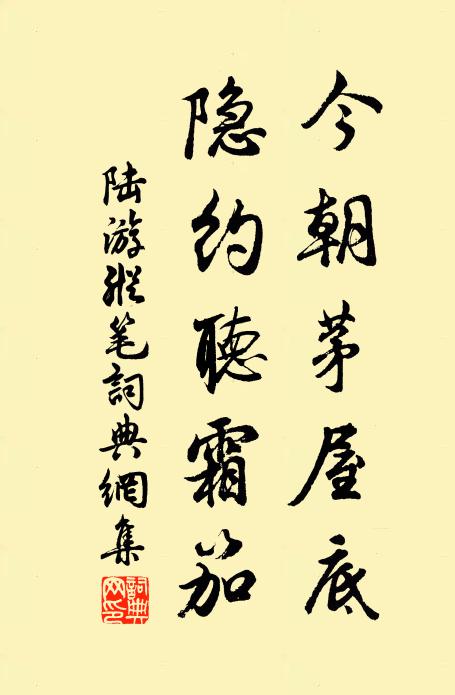 今朝茅屋底
隐约聽霜笳
陆游縱笔詞典網集
詞典网印